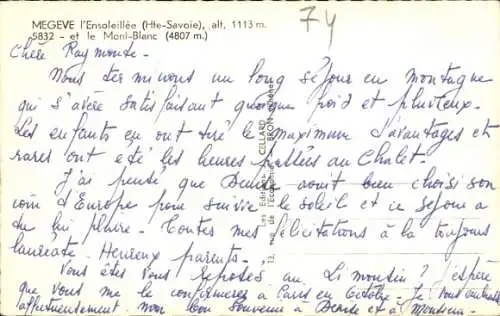 MEGEVE l'Ensoleillée (Hte-Savoie), alt. 1113 m.
5832 - et le Mont-Blanc (4807 m.)
74
Chère Raymonde -
Nous terminons un long séjour en montagne
qui s'avère satisfaisant quoique froid et pluvieux.
Les enfants en ont tiré le maximum d'avantages et
rares ont été les heures passées au Chalet.
J'ai pensé que avait bien choisi son
coin d'Europe pour suivre le soleil et ce séjour a
du lui plaire. Toutes mes félicitations à la toujours
lauréate. Heureux parents.
Vous êtes vous reposés au Limousin ? J'espère
que vous me le confirmerez à Paris en Octobre. Je vous embrasse
affectueusement. Mon bon souvenir à et à Monsieur.
Les Editions CELLARD
rue de l'Ecole BRON